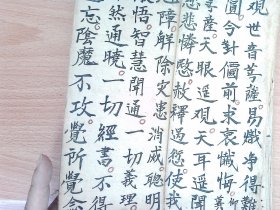 觀世音菩薩。易得難
圓。今對儞前求哀懺悔。仰
菩薩。天眼遥觀。天耳遥聞
悲憐愍。赦釋過愆。使我
障。解除災患。消滅。聰明
悟。智慧開通。一切義理
然通曉。一切經書。不得
忘。陰魔不攻。覺所覺念